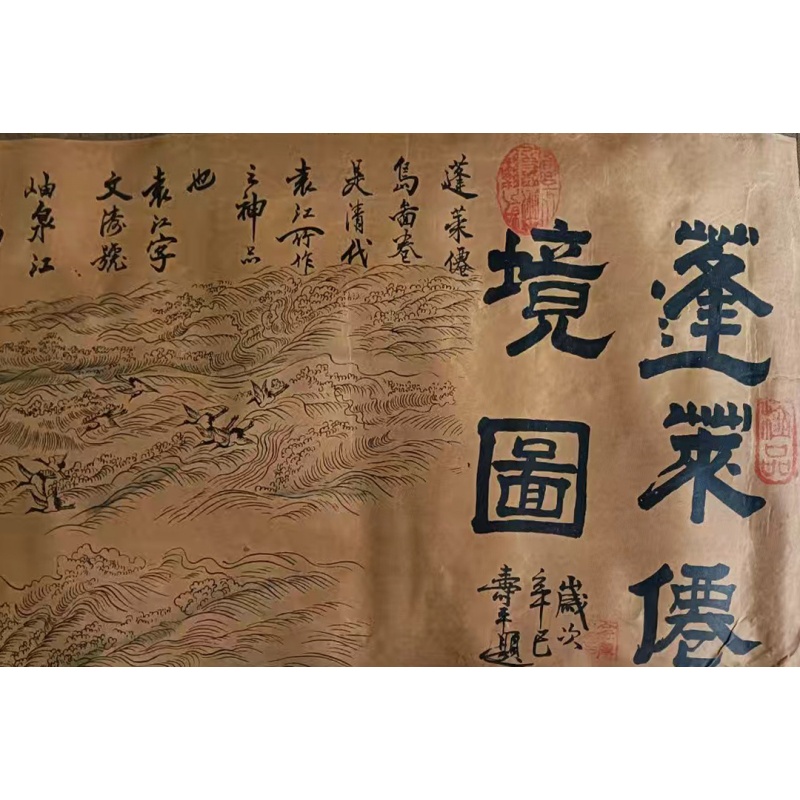 蓬萊僊
境圖
歲次
辛巳
壽平題
蓬萊僊
島圖卷
是清代
袁江所作
之神品
也
袁江字
文濤號
岫泉江